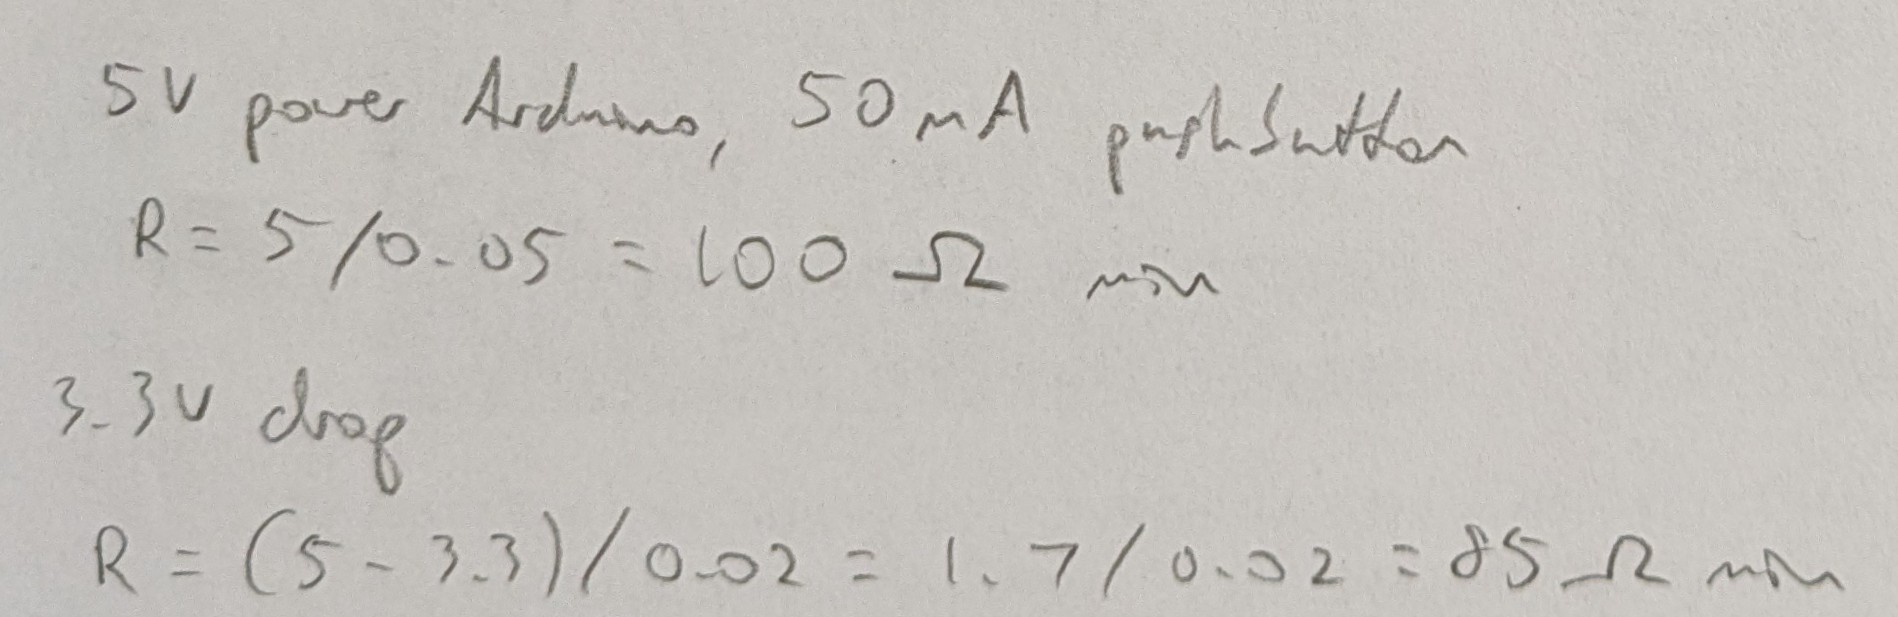 5V power Arduino, 50mA pushbutton
R = 5/0.05 = 100 Ω min
3.3V drop
R = (5-3.3)/0.02 = 1.7/0.02 = 85 Ω min